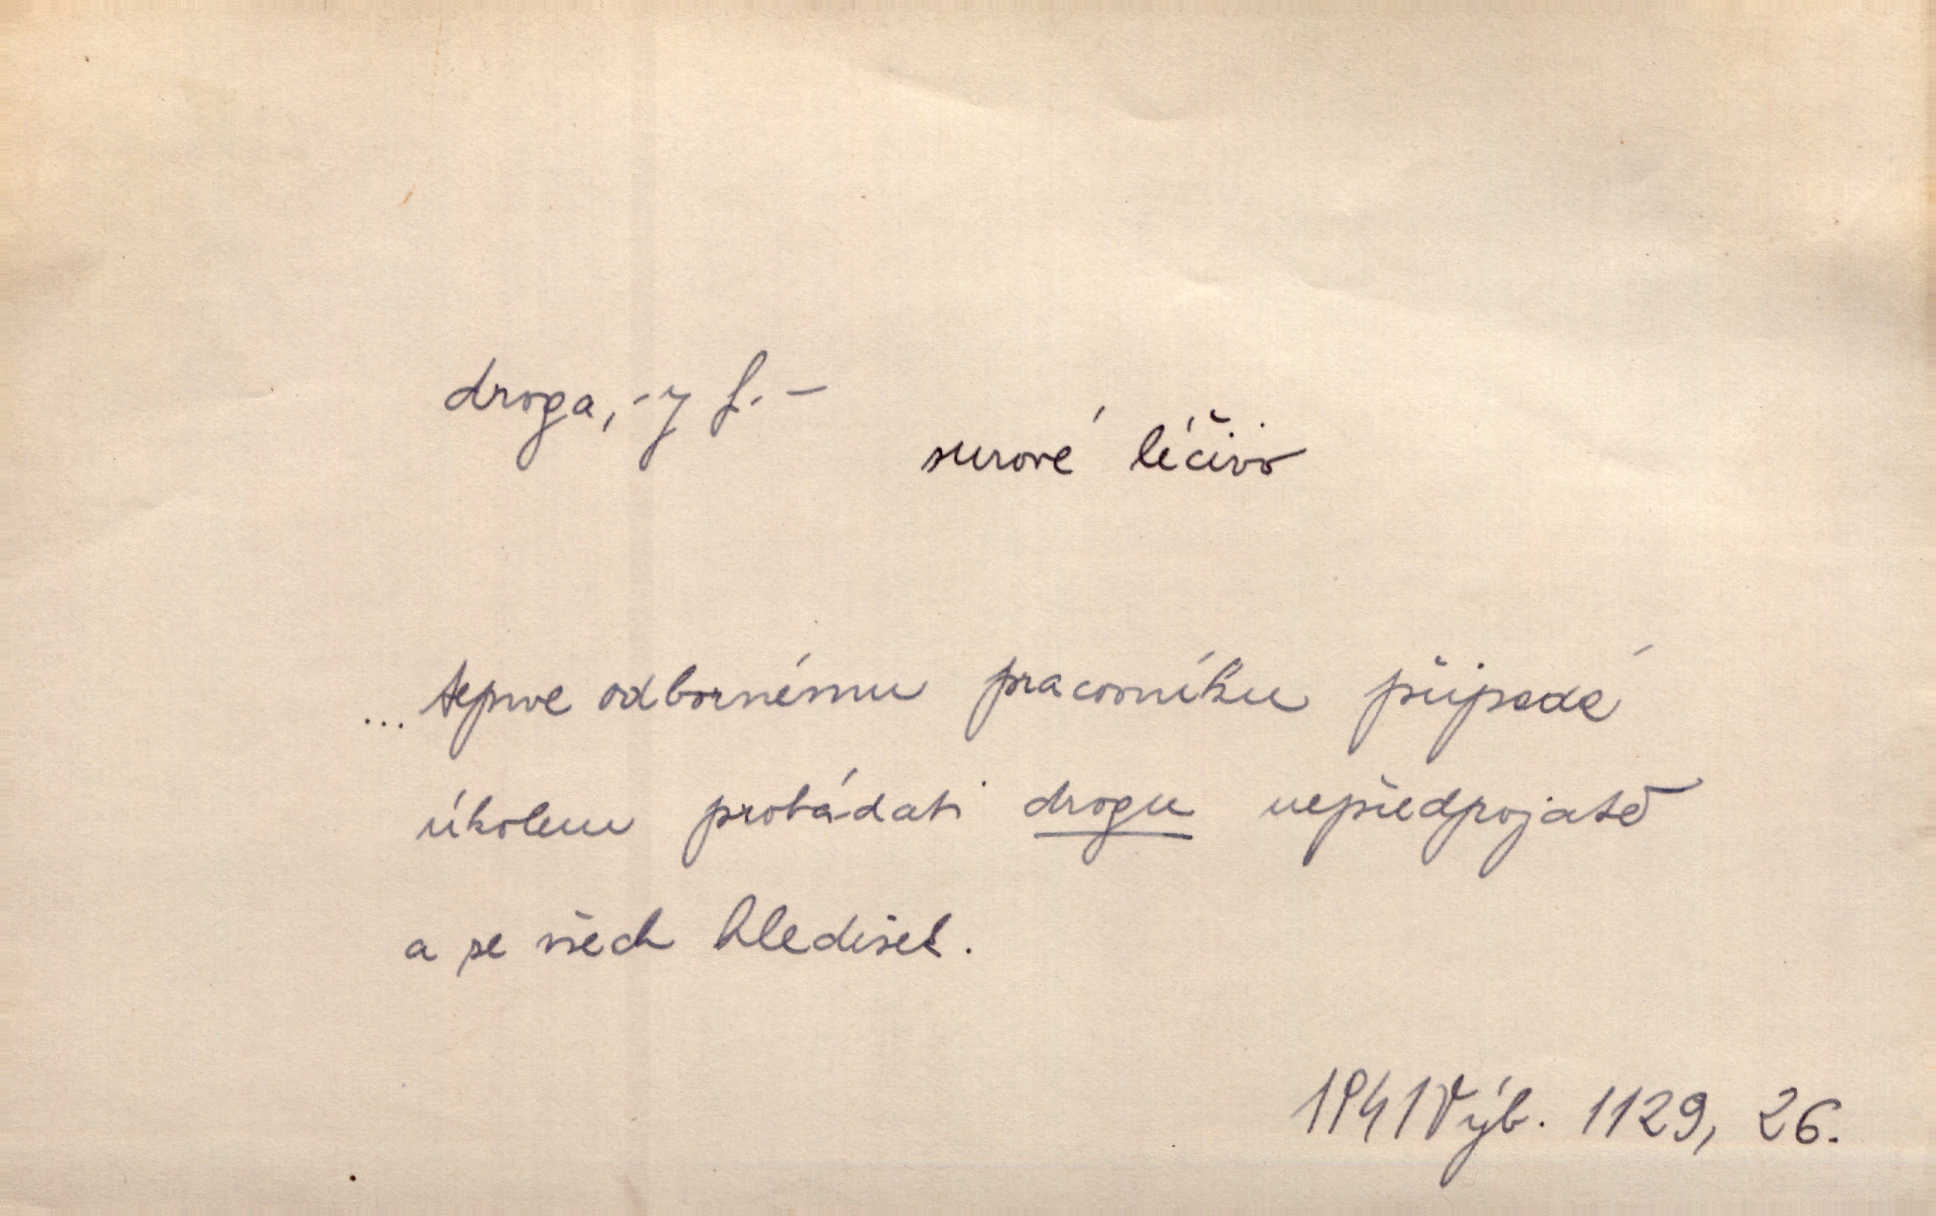 droga, -y f. –
surové léčivo
... teprve odbornému pracovníku připadá
úkolem probádati drogu nepředpojatě
a se všech hledisek.
1941 Výb. 1129, 26.